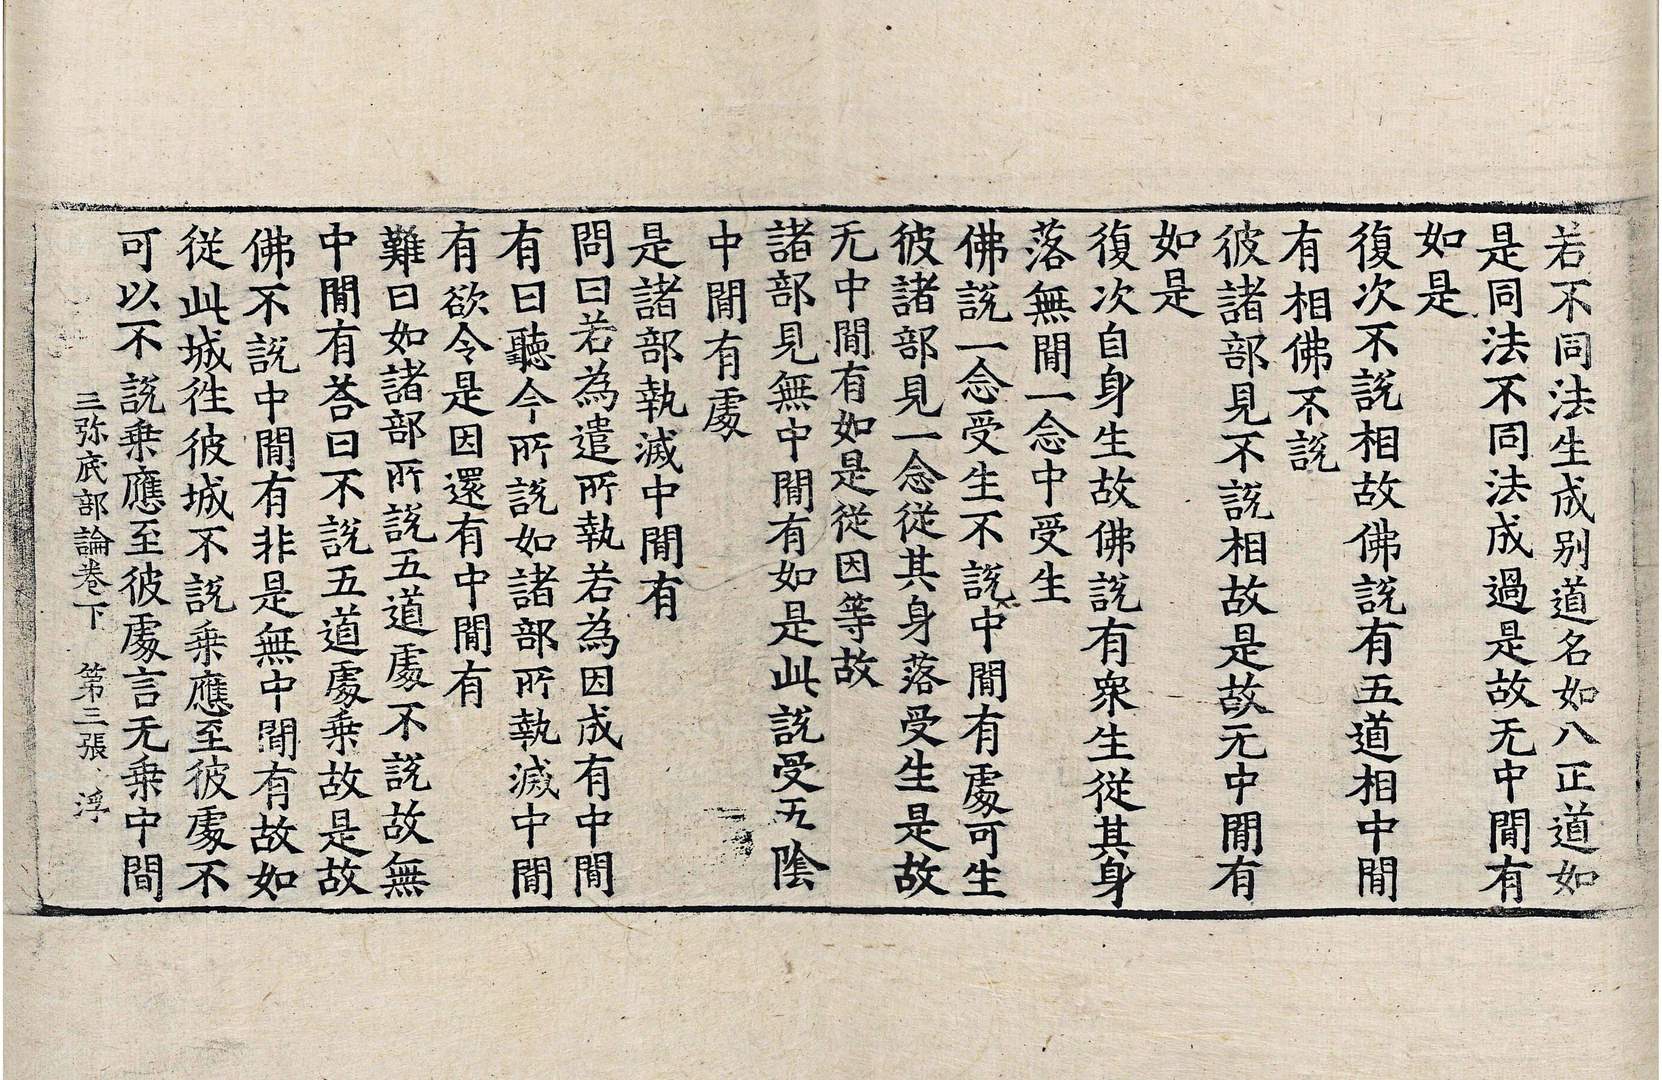 若不同法生成别道名如八正道如
是同法不同法成過是故无中間有
如是
復次不說相故佛說有五道相中間
有相佛不說
彼諸部見不說相故是故无中間有
如是
復次自身生故佛說有衆生從其身
落無間一念中受生
佛說一念受生不說中間有處可生
彼諸部見一念從其身落受生是故
无中間有如是從因等故
諸部見無中間有如是此說受五陰
中間有處
是諸部執滅中間有
問曰若為遣所執若為因成有中間
有曰聽今所說如諸部所執滅中間
有欲令是因還有中間有
難曰如諸部所說五道處不說故無
中間有荅曰不說五道處乗故是故
佛不說中間有非是無中間有故如
從此城徃彼城不說乗應至彼處不
可以不說乗應至彼處言无乗中間
三弥底部論卷下 第三張 浮